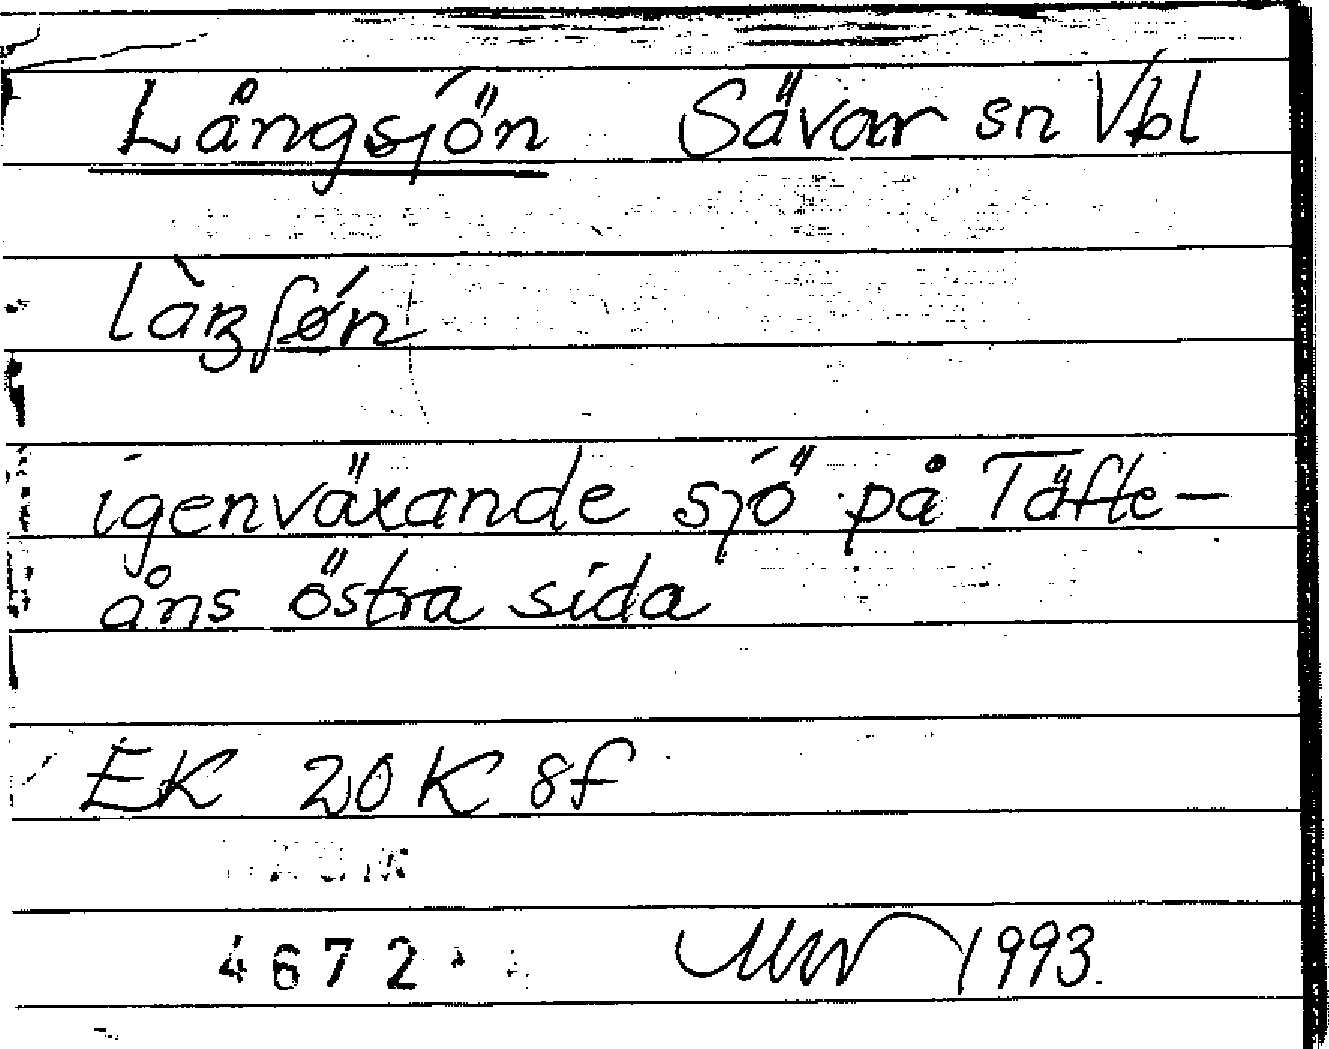 Långsjön Sävar sn Vbl
igenväxande sjö på Täfte-
åns östra sida
EK 20K 8f
4672
1993.